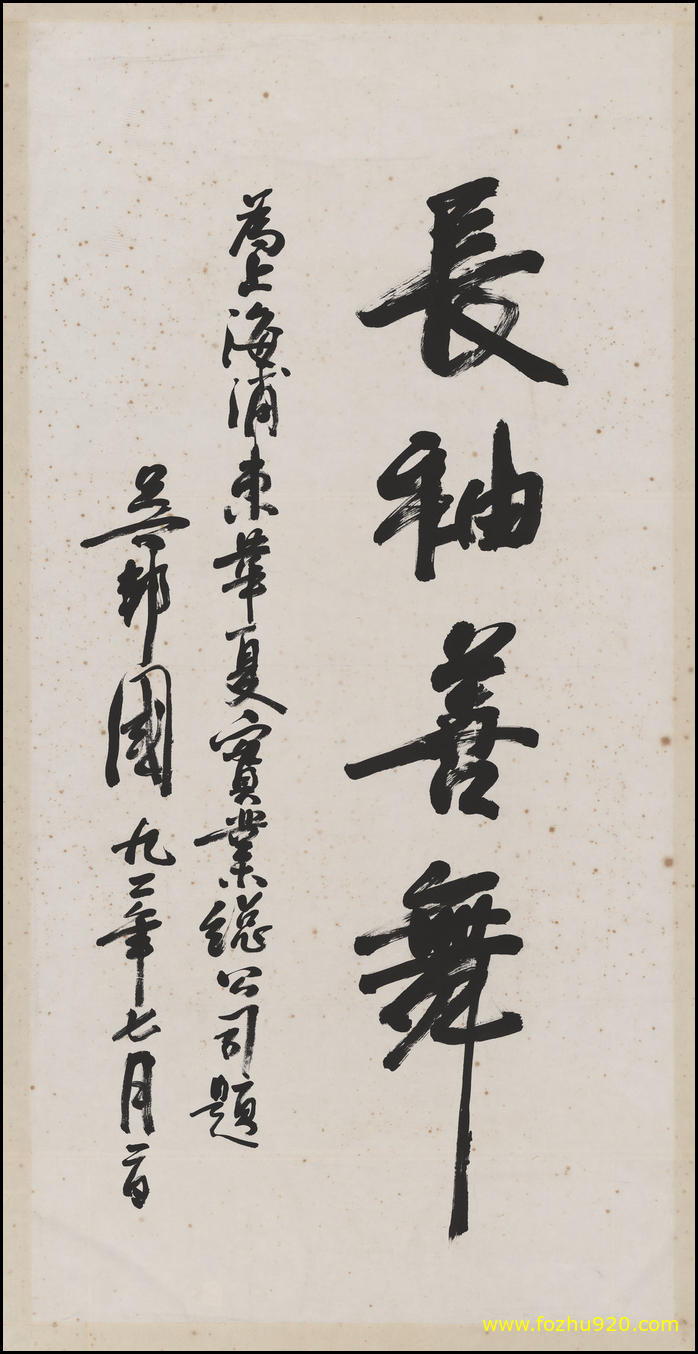 長袖善舞
為上海浦東華夏實業總公司題
吳邦國 九二年七月二日
www.fozhu920.com